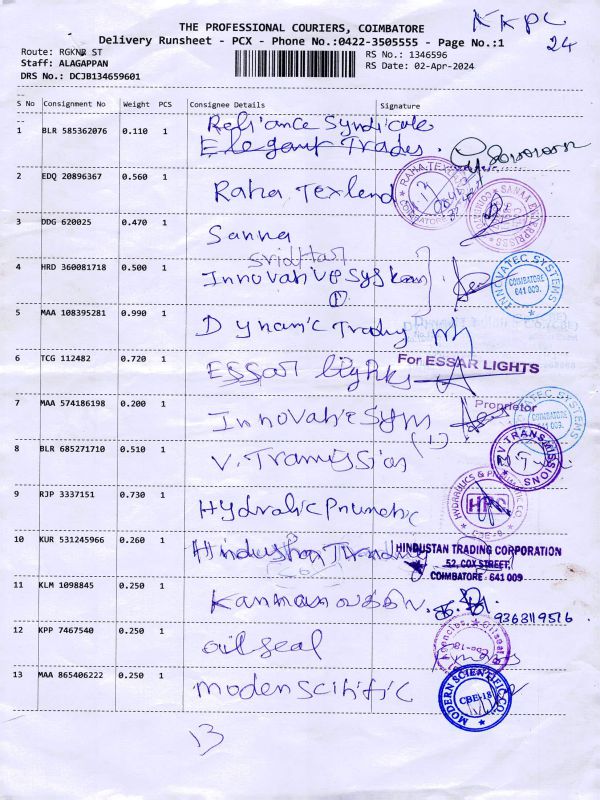 THE PROFESSIONAL COURIERS, COIMBATORE
Delivery Runsheet - PCX - Phone No.:0422-3505555 - Page No.:1
KKPC
24
Route: RGKNB ST
Staff: ALAGAPPAN
DRS No.: DCJB134659601
RS No.: 1346596
RS Date: 02-Apr-2024
S No Consignment No Weight PCS Consignee Details Signature
1 BLR 585362076 0.110 1 Reliance Syndicate
Elegant Trades.
2 EDQ 20896367 0.560 1 Raha Texlend
RAHA TEX
COIMBATORE
3 DDG 620025 0.470 1 Sanna
SANAA ENTERPRISES
Sridhar
4 HRD 360081718 0.500 1 Innovative System
(1)
INNOVATEC SYSTEMS
COIMBATORE
641 009.
5 MAA 108395281 0.990 1 Dynamic Trading
6 TCG 112482 0.720 1 ESSar Lights
For ESSAR LIGHTS
Proprietor
7 MAA 574186198 0.200 1 Innovative Sym
(1)
COIMBATORE
641 009.
8 BLR 685271710 0.510 1 V. Tramission
V. TRANSMISSIONS
9 RJP 3337151 0.730 1 Hydralic Pnumetic
HYDRAULICS & PNEUMATIC CO
HPC
10 KUR 531245966 0.260 1 Hindusthan Trading
HINDUSTAN TRADING CORPORATION
52, COX STREET,
COIMBATORE - 641 009
11 KLM 1098845 0.250 1
9363119516
12 KPP 7467540 0.250 1 oil seal
Agencies
13 MAA 865406222 0.250 1 Moden Scitific
MODERN SCIENTIFIC CO.
CBE-18
13